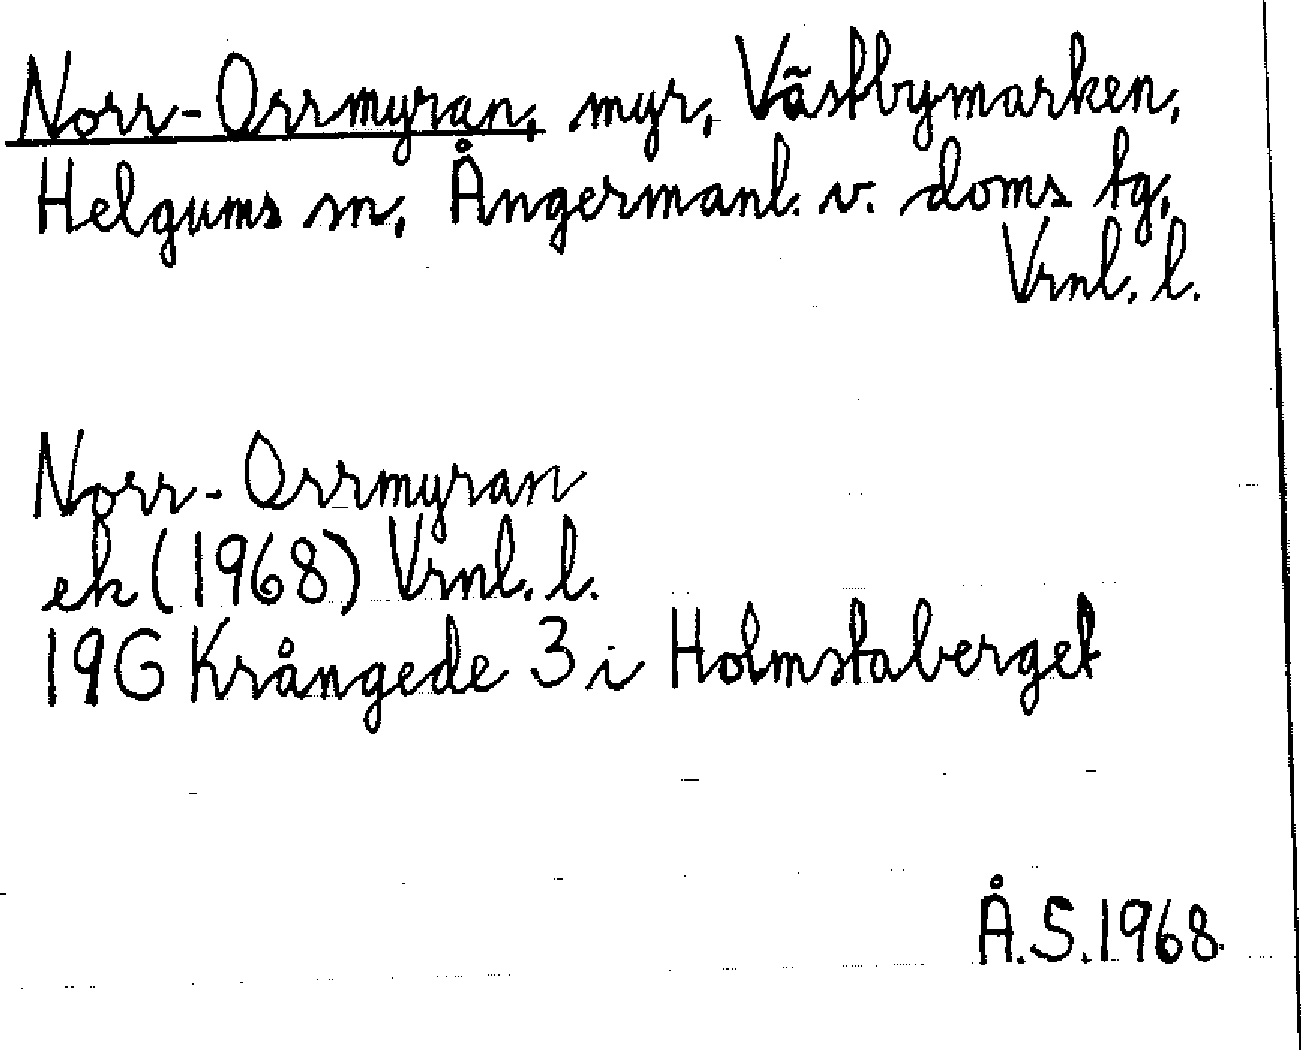 Norr-Orrmyran, myr, Västbymarken,
Helgums sn, Ångermanl. v. doms tg,
Vrnl. l.
Norr-Orrmyran
ek (1968) Vrnl. l.
19G Krångede 3 i Holmstaberget
Å.S.1968.